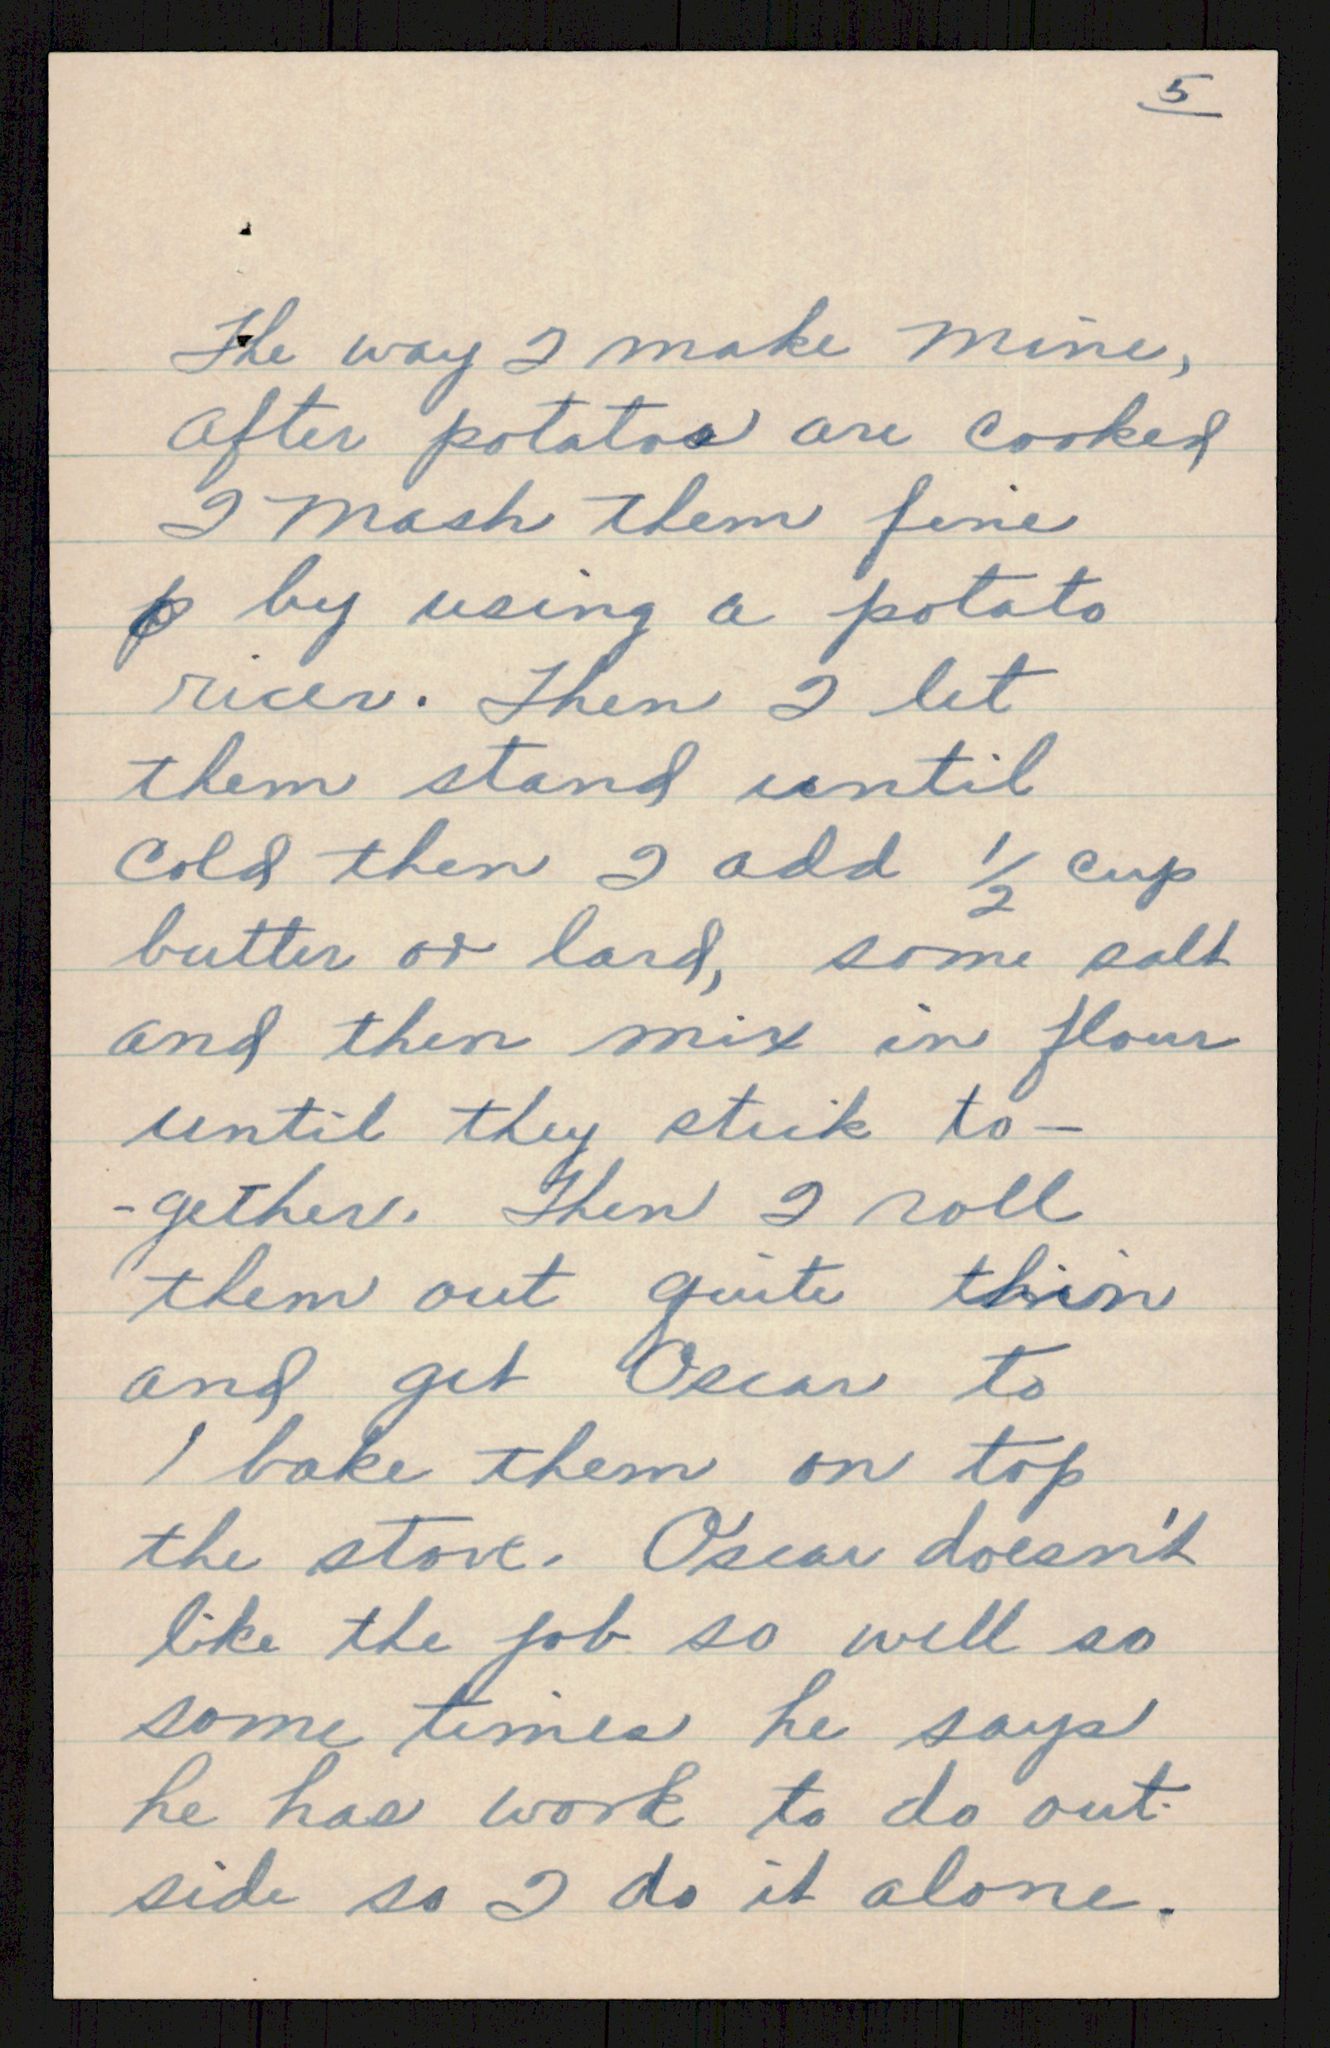 5
The way I make mine,
after potatos are cooked
I mash them fine
by using a potato
ricer. Then I let
them stand until
cold then I add 1/2 cup
butter or lard, some salt
and then mix in flour
until they stick to-
-gether. Then I roll
them out quite thin
and get Oscar to
bake them on top
the stove. Oscar doesn't
like the job so well so
some times he says
he has work to do out-
side so I do it alone.